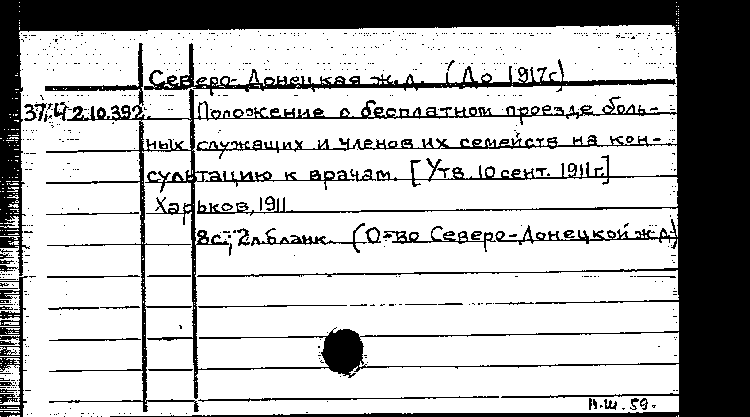 Северо-Донецкая ж.д. (До 1917г)
37/4 2.10.392. Положение о бесплатном проезде боль-
ных служащих и членов их семейств на кон-
сультацию к врачам. [Утв. 10 сент. 1911г.]
Харьков, 1911.
8с.; 2л.бланк. (О-во Северо-Донецкой ж.д)
н.ш. 59.